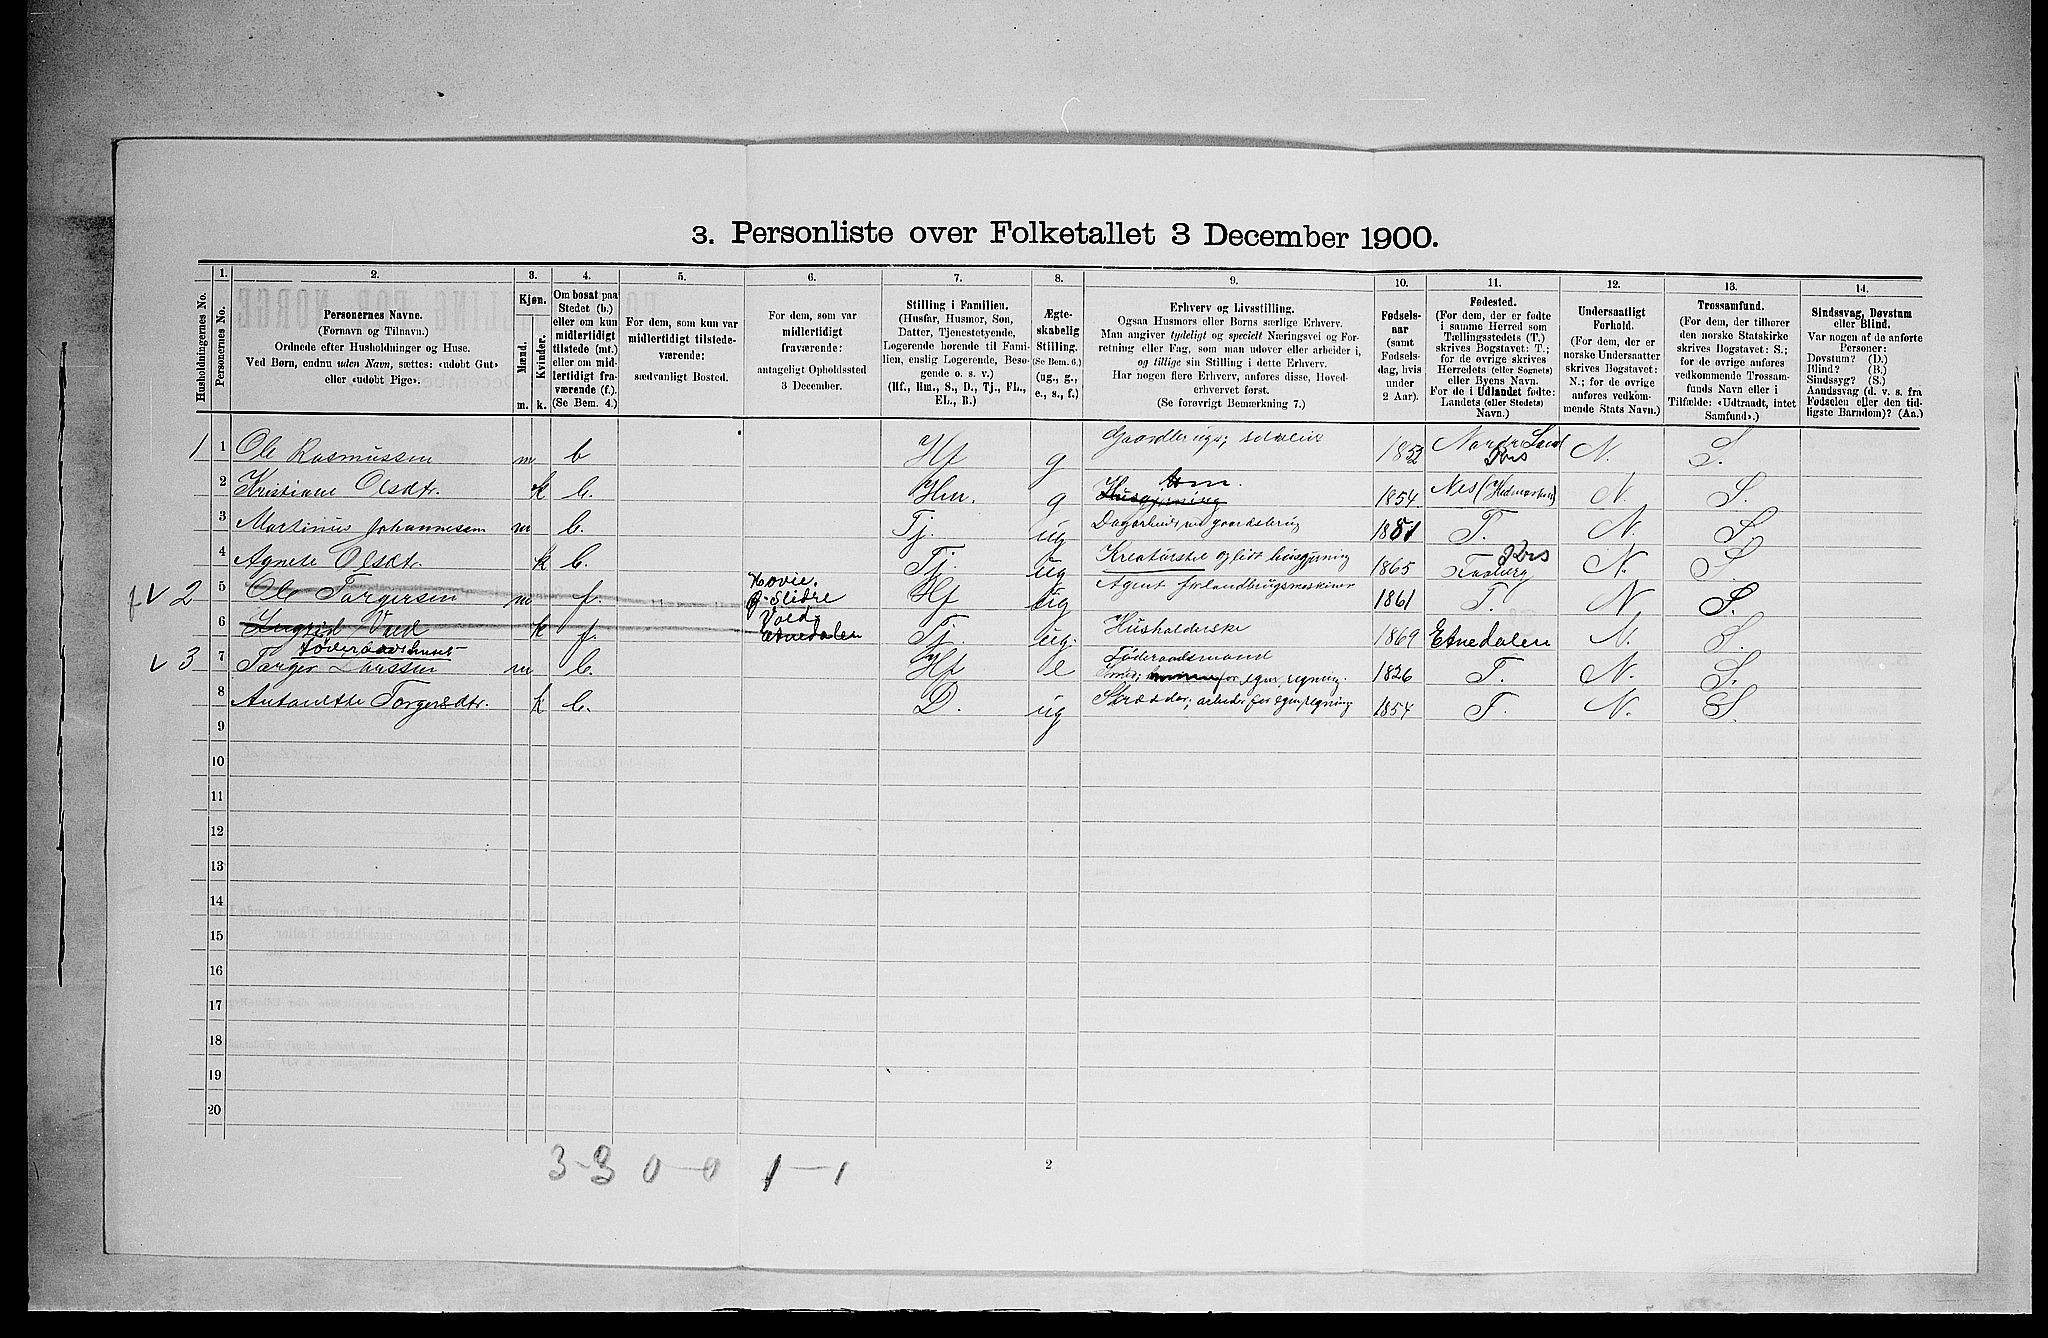 3. Personliste over Folketallet 3 December 1900.
Husholdningernes No.
1.
Personernes No.
2.
Personernes Navne.
(Fornavn og Tilnavn.)
Ordnede efter Husholdninger og Huse.
Ved Børn, endnu uden Navn, sættes: «udobt Gut»
eller «udobt Pige».
3.
Kjøn.
Mænd.
Kvinder.
m.
k.
4.
Om bosat paa
Stedet (b.)
eller om kun
midlertidigt
tilstede (mt.)
eller om mid-
lertidigt fra-
værende (f.).
(Se Bem. 4.)
5.
For dem, som kun var
midlertidigt tilstede-
værende:
sædvanligt Bosted.
6.
For dem, som var
midlertidigt
fraværende:
antageligt Opholdssted
3 December.
7.
Stilling i Familien.
(Husfar, Husmor, Søn,
Datter, Tjenestetyende,
Logerende hørende til Fami-
lien, enslig Logerende, Besø-
gende o. s. v.)
(Hf., Hm., S., D., Tj., FL.,
EL., B.)
8.
Ægte-
skabelig
Stilling.
(Se Bem. 6.)
(ug., g.,
e., s., f.)
9.
Erhverv og Livsstilling.
Ogsaa Husmors eller Børns særlige Erhverv.
Man angiver tydeligt og specielt Næringsvei og For-
retning eller Fag, som man udøver eller arbeider i,
og tillige sin Stilling i dette Erhverv.
Har nogen flere Erhverv, anføres disse, Hoved-
erhvervet først.
(Se forøvrigt Bemærkning 7.)
10.
Fødsels-
aar
(samt
Fødsels-
dag, hvis
under
2 Aar).
11.
Fødested.
(For dem, der er fødte
i samme Herred som
Tællingsstedets (T.)
skrives Bogstavet: T.;
for de øvrige skrives
Herredets (eller Sognets)
eller Byens Navn.
For de i Udlandet fødte:
Landets (eller Stedets)
Navn.)
12.
Undersaatligt
Forhold.
(For dem, der er
norske Undersaatter
skrives Bogstavet:
N.; for de øvrige
anføres vedkom-
mende Stats Navn.)
13.
Trossamfund.
(For dem, der tilhører
den norske Statskirke
skrives Bogstavet: S.;
for de øvrige anføres
vedkommende Trossam-
funds Navn eller i
Tilfælde: «Udtraadt, intet
Samfund».)
14.
Sindssvag, Døvstum
eller Blind.
Var nogen af de anførte
Personer:
Døvstum? (D.)
Blind? (B.)
Sindssyg? (S.)
Aandssvag (d. v. s. fra
Fødselen eller den tid-
ligste Barndom)? (Aa.)
1 1 Ole Rasmussen m b Hf g Gaardbruger, selveier 1852 Nordre Land N. S.
2 Kristiane Olsdtr. k b. Hm. g Husgjerning Hm. 1854 Nes (Hedmarken) N. S.
3 Martinus Johannessen m b. Tj. ug 1881 T. N. S
4 Agnete Olsdtr. k b. Tj. ug Kreaturstel og lidt husgjerning 1865 Faaberg N. S.
2 5 Ole Torgersen m f. Hovie, Ø. Slidre Hf ug Agent for landbrugsmaskiner 1861 T. N. S.
6 Ingrid Vold k f. Vold, Etnedalen Tj. ug. Husholderske 1869 Etnedalen N. S.
Føderaadshuset
3 7 Torger Larssen m b. Hf e Føderaadsmand for egen regning. 1826 T. N. S.
8 Antonette Torgersdtr. k b. D. ug Skrædder; arbeider for egen regning 1854 T. N. S.
9
10
11
12
13
14
15
16
17
18
19
20
3-3 0-0 1-1
2